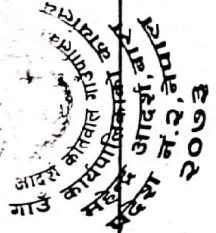 आदर्श कोतवाल गाउँपालिका
गाउँ कार्यपालिकाको कार्यालय
महेन्द्र आदर्श, बारा
प्रदेश नं.२, नेपाल
२०७३